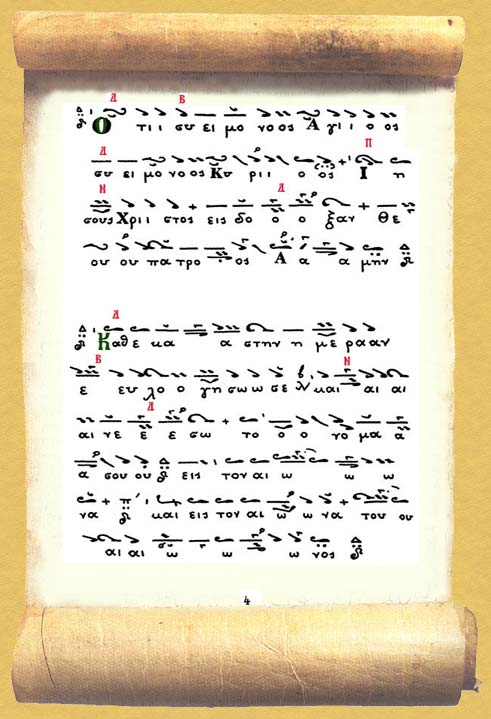 Δ Β
Ο τι ι συ ει μο νο ος Α γι ι ο ος
Δ Π
συ ει μο νο ος Κυ ρι ι ο ος Ι η
Ν Δ
σους Χρι ι στος εις δο ο ο ξαν Θε
ου ου πα τρο ος Α α α μην
Δ
Καθε κα α στην η με ρα αν
Β Ν
ε ευ λο ο γη σω ω σε και αι αι
Δ
αι νε ε ε σω το ο ο νο μα α
α σου ου εις τον αι ω ω ω
να και εις τον αι ω ω να του ου
αι αι ω ω ω νος
4